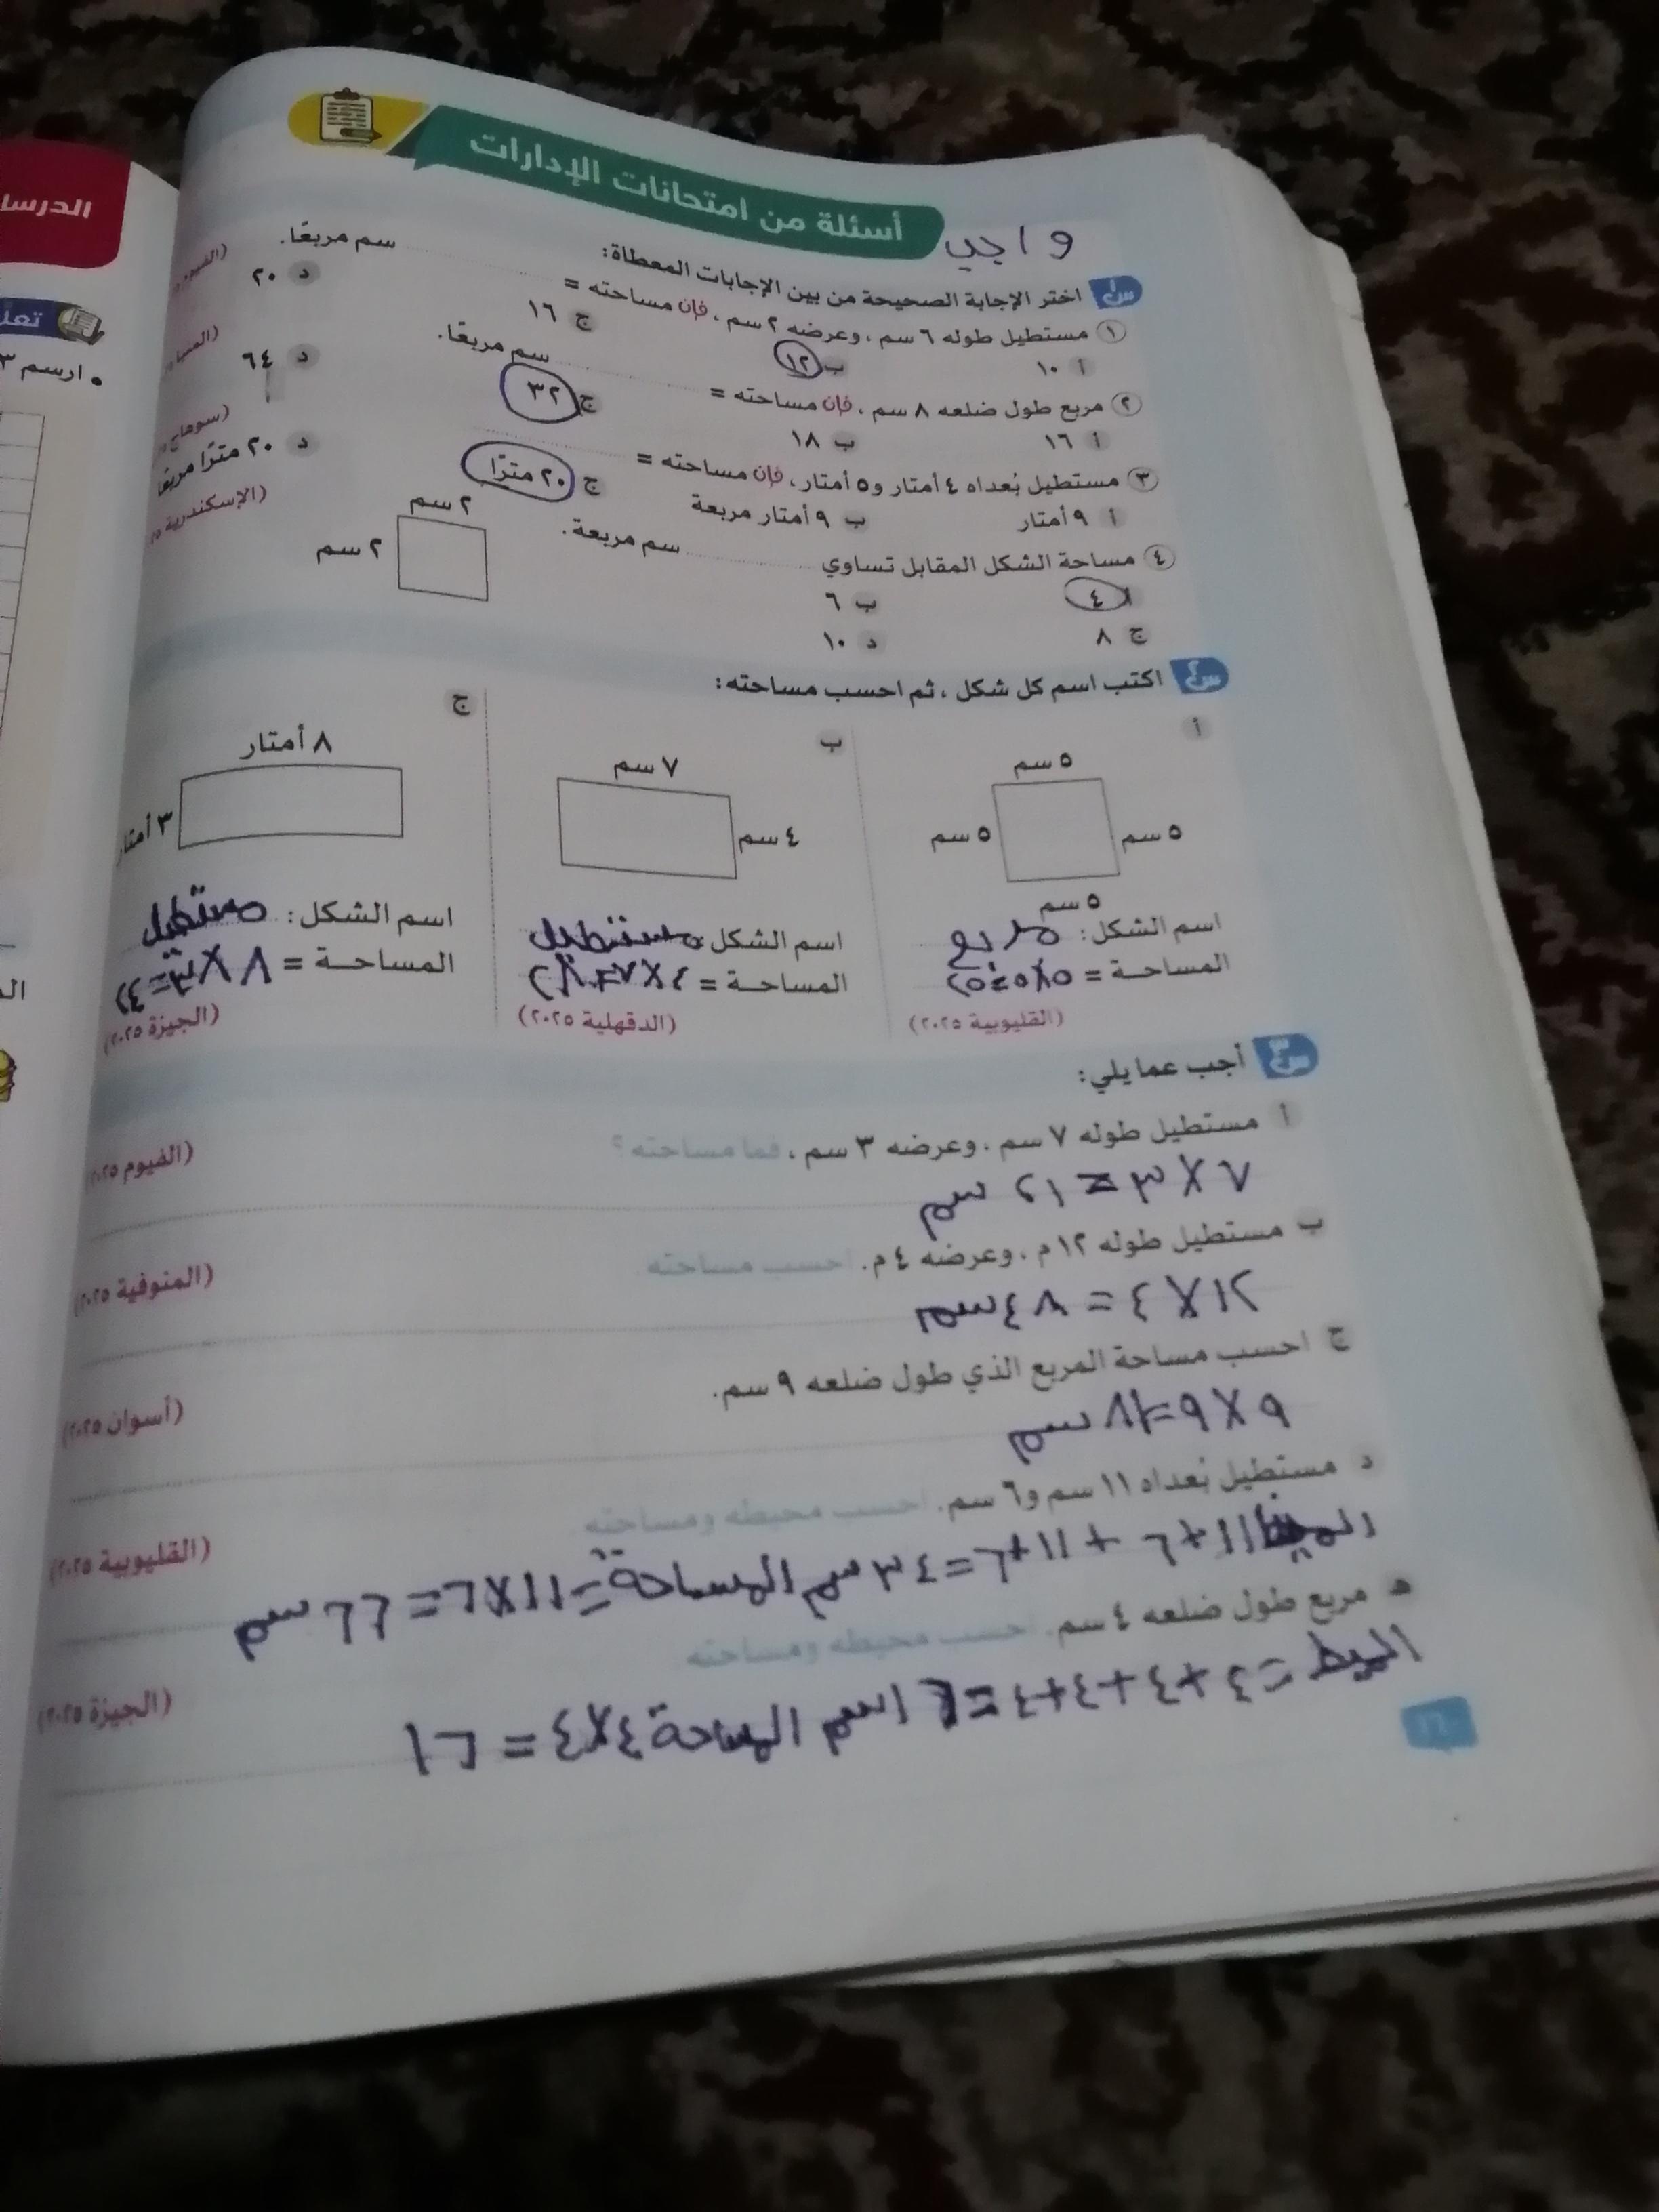 أسئلة من امتحانات الإدارات
واجب
س١ اختر الإجابة الصحيحة من بين الإجابات المعطاة:
١ مستطيل طوله ٦ سم ، وعرضه ٢ سم ، فإن مساحته = سم مربعًا.
أ ١٠ ب ١٢ ج ١٦ د ٢٠
(الفيوم
٢ مربع طول ضلعه ٨ سم ، فإن مساحته = سم مربعًا.
أ ١٦ ب ١٨ ج ٣٢ د ٦٤
(المنيا
٣ مستطيل بُعداه ٤ أمتار و٥ أمتار، فإن مساحته =
أ ٩ أمتار ب ٩ أمتار مربعة ج ٢٠ مترًا د ٢٠ مترًا مربعًا
(سوهاج
٤ مساحة الشكل المقابل تساوي سم مربعة.
(الإسكندرية
٢ سم
٢ سم
أ ٤ ب ٦
ج ٨ د ١٠
س٢ اكتب اسم كل شكل ، ثم احسب مساحته:
أ ب ج
٥ سم ٧ سم ٨ أمتار
٥ سم ٥ سم ٤ سم ٣ أمتار
٥ سم
اسم الشكل: مربع
المساحة = ٥×٥=٢٥
(القليوبية ٢٠٢٥)
اسم الشكل: مستطيل
المساحة = ٤×٧=٢٨
(الدقهلية ٢٠٢٥)
اسم الشكل: مستطيل
المساحة = ٨×٣=٢٤
(الجيزة ٢٠٢٥)
س٣ أجب عما يلي:
أ مستطيل طوله ٧ سم ، وعرضه ٣ سم ، فما مساحته؟ (الفيوم ٢٠٢٥)
٧×٣=٢١ سم
ب مستطيل طوله ١٢ م ، وعرضه ٤ م. احسب مساحته (المنوفية ٢٠٢٥)
١٢×٤=٤٨ سم
ج احسب مساحة المربع الذي طول ضلعه ٩ سم. (أسوان ٢٠٢٥)
٩×٩=٨١ سم
د مستطيل بُعداه ١١ سم و٦ سم. احسب محيطه ومساحته (القليوبية ٢٠٢٥)
المحيط ١١+٦+١١+٦=٣٤ سم المساحة=١١×٦=٦٦ سم
هـ مربع طول ضلعه ٤ سم. احسب محيطه ومساحته (الجيزة ٢٠٢٥)
المحيط=٤+٤+٤+٤=١٦ سم المساحة ٤×٤=١٦
الدرسا
تعلـ
• ارسم ٣